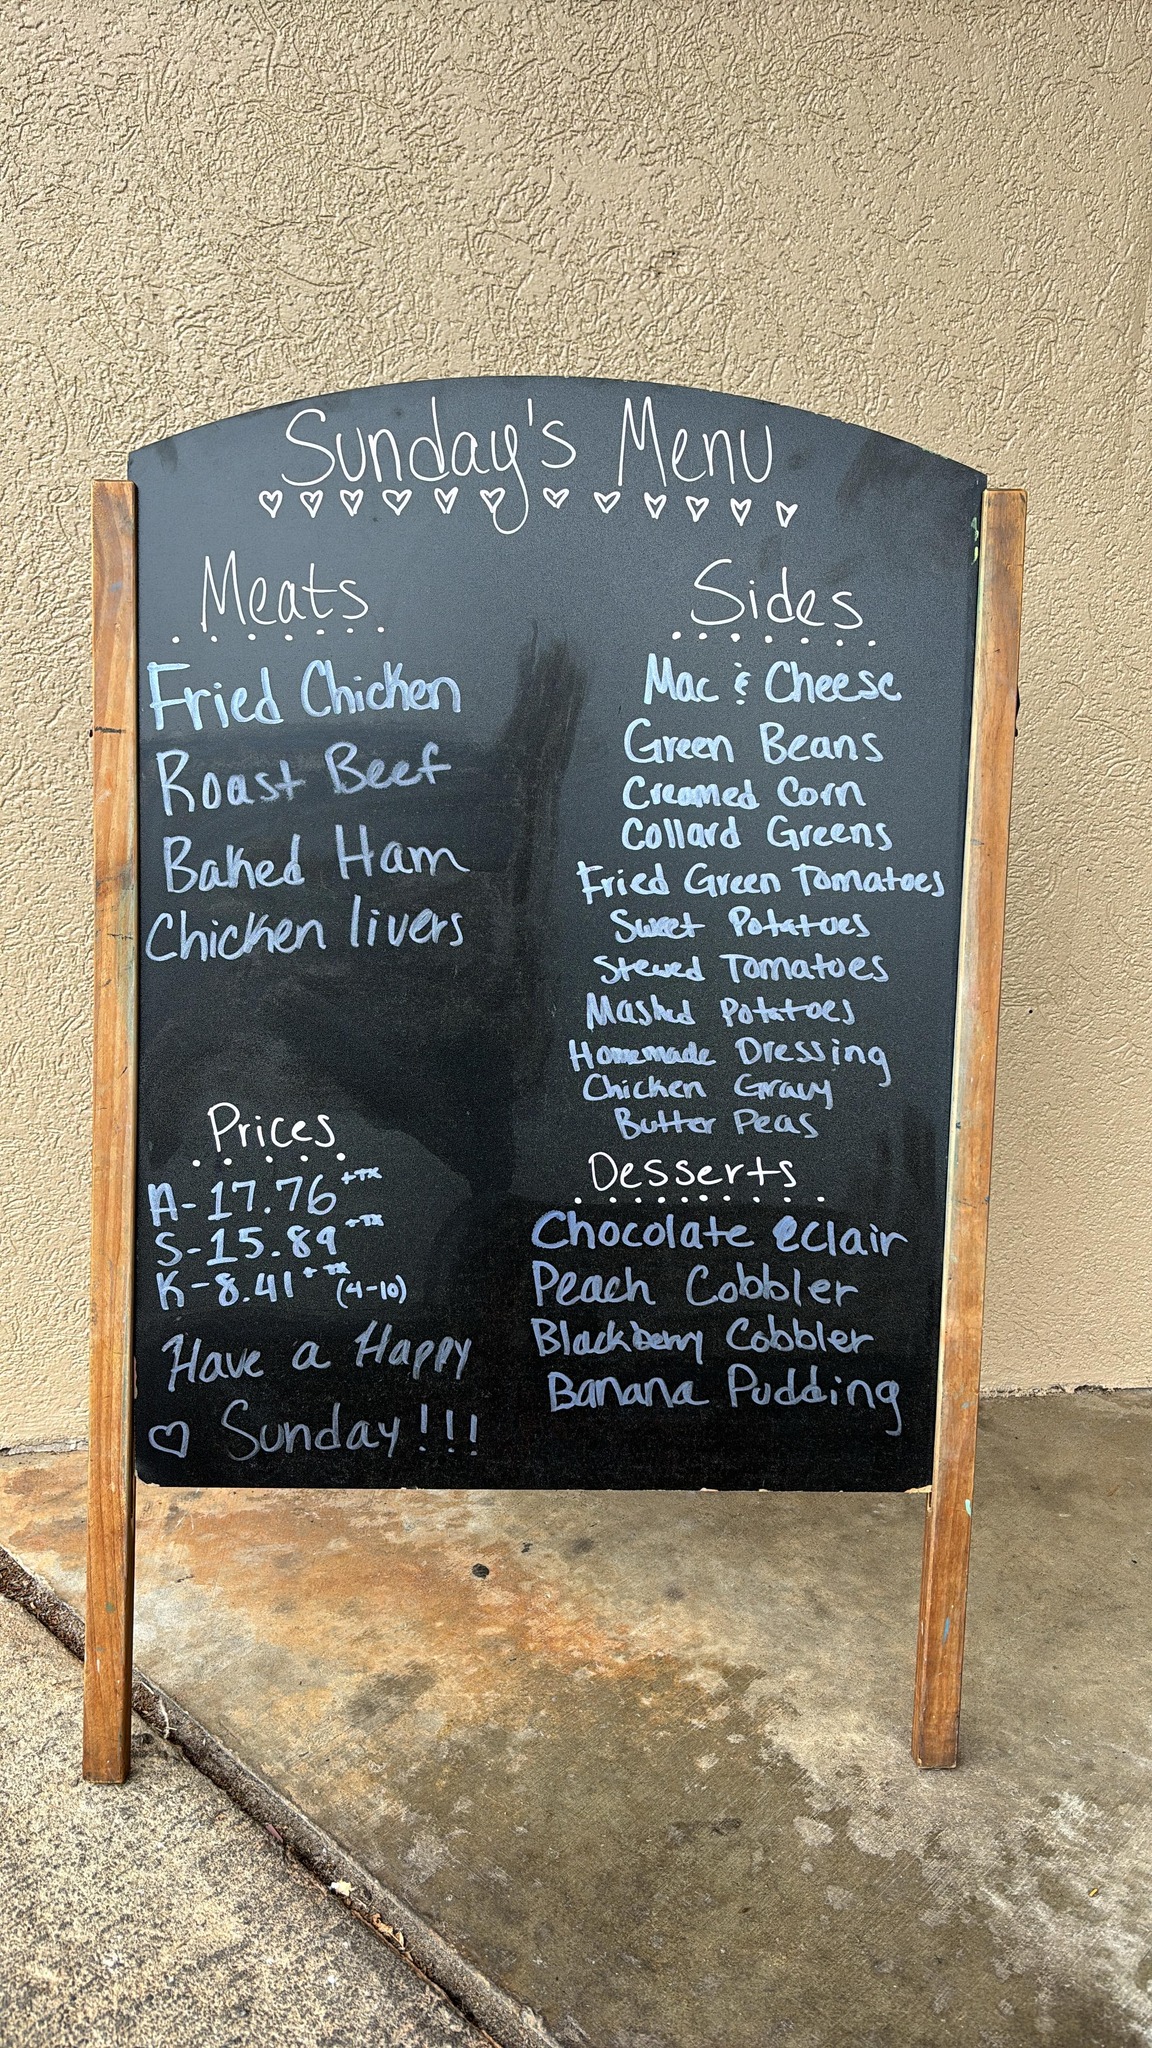 Sunday's Menu
Meats
Fried Chicken
Roast Beef
Baked Ham
Chicken livers
Prices
A-17.76 +TX
S-15.89 +TX
K-8.41 +TX (4-10)
Have a Happy
♡ Sunday!!!
Sides
Mac & Cheese
Green Beans
Creamed Corn
Collard Greens
Fried Green Tomatoes
Sweet Potatoes
Stewed Tomatoes
Mashed Potatoes
Homemade Dressing
Chicken Gravy
Butter Peas
Desserts
Chocolate eclair
Peach Cobbler
Blackberry Cobbler
Banana Pudding